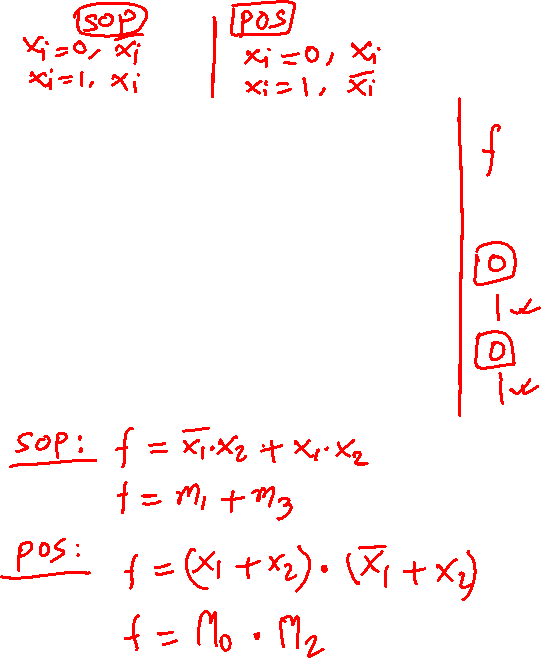 SOP | POS
xᵢ=0, x̅ᵢ | xᵢ=0, xᵢ
xᵢ=1, xᵢ | xᵢ=1, x̅ᵢ
f
0
1 ✓
0
1 ✓
SOP: f = x̅₁·x₂ + x₁·x₂
f = m₁ + m₃
POS: f = (x₁ + x₂)·(x̅₁ + x₂)
f = M₀ · M₂